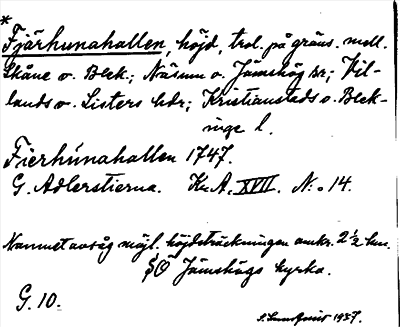 *
Fjärhunahallen, höjd, trol. på gräns. mell.
Skåne o. Blek.; Näsum o. Jämshög sr; Vil-
lands o. Listers hdr; Kristianstads o. Blek-
inge l.
Fierhúnahallen 1747.
G. Adlerstierna. Kr. A. XVII. N:o 14.
Namnet avsåg möjl. höjdsträckningen omkr. 2½ km.
SÖ Jämshögs kyrka.
G. 10.
S. Sundquist 1937.